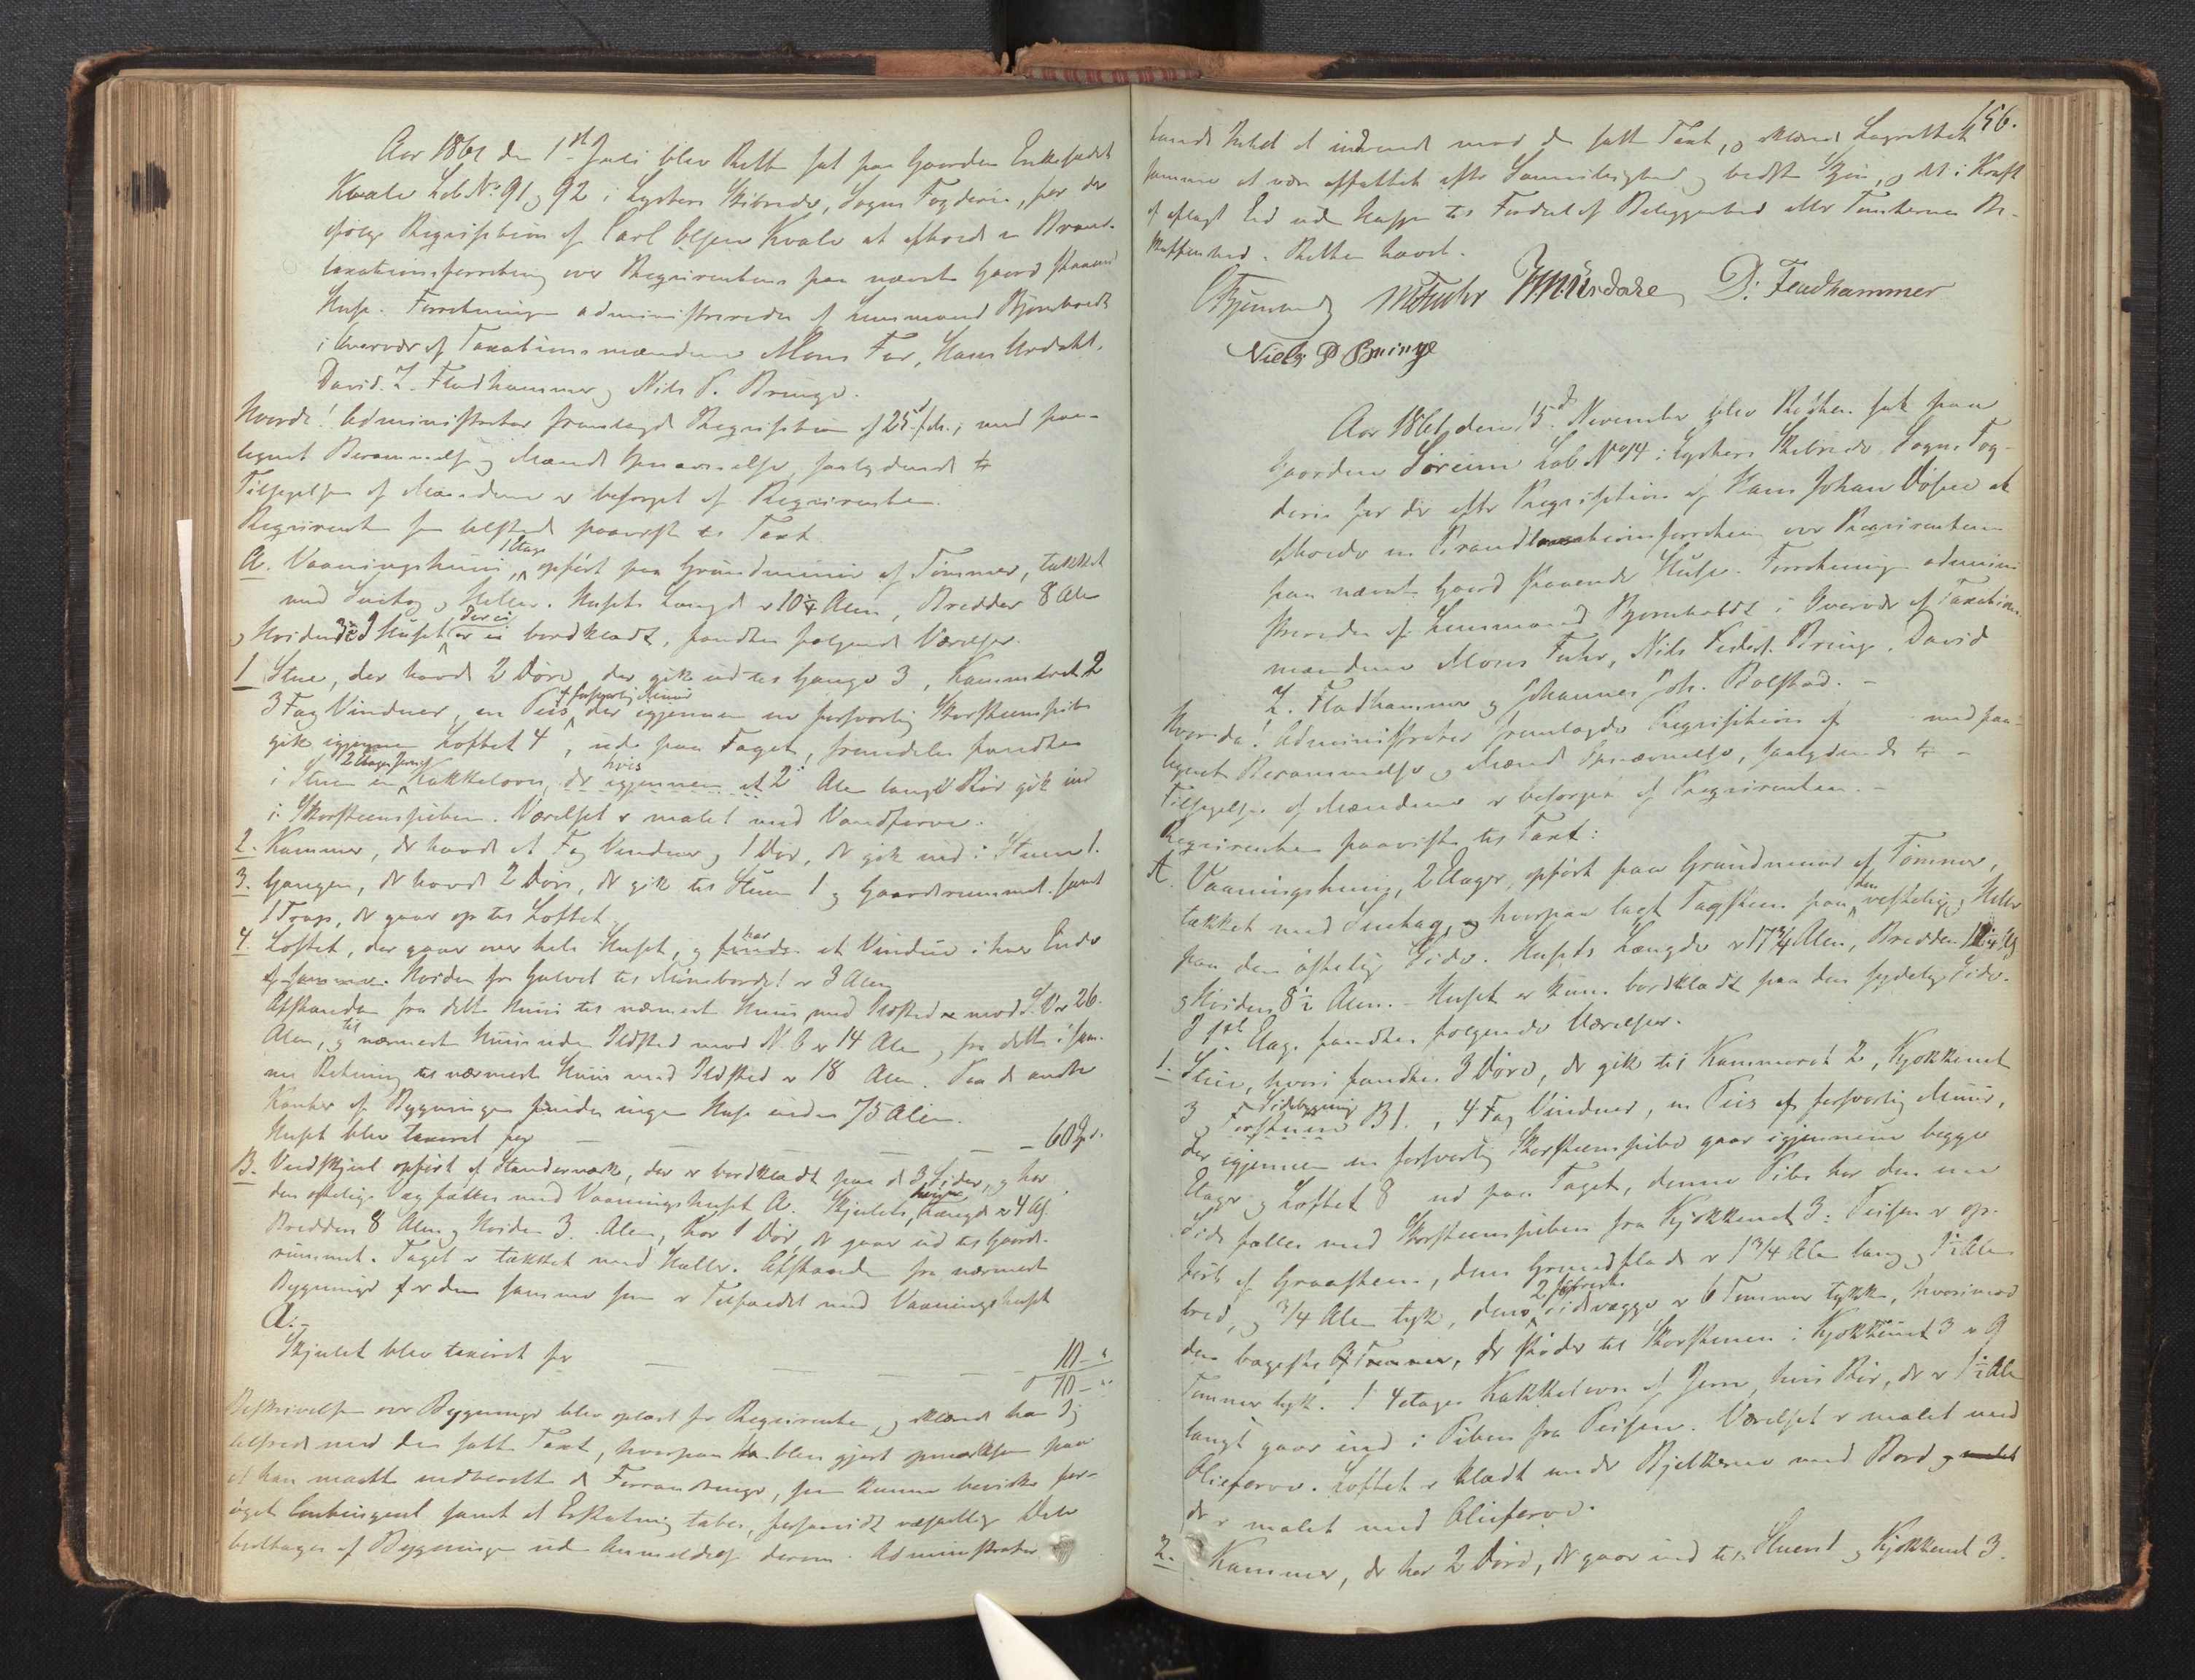 Aar 1861 den 1st Juli blev Retten sat paa Gaarden Enkesædet
Kvale Løb No 91 og 92 i Lysters Skibrede, Sogns Fogderie, for der
ifølge Requisition af Carl Olsen Kvale at afholde en Brand-
taxationsforretning over Requirentens paa nævnte Gaard staaende
Huse. Forretningen administreredes af Lensmand Bjørnholdt
i Overvær af Taxationsmændene Mons Fur, Hans Urdahl,
David Z. Fladhammer og Nils P. Bringe.
Hvorda! Administrator fremlagde Requisition af 25d f. M., med paa-
tegnet Berammelse og Mænds Opnævnelse, saalydende
Tilsigelsen af Mændene er besørget af Requirenten.
Requirenten som tilstede paaviste til Taxt.
A. Vaaningshuus, 1 Etage opført paa Grundmuur af Tømmer, tækket
med Sutag og Heller. Husets Længde er 10 1/4 Alen, Bredden 8 Alen
og Høiden 3 I Huset der ei er bordklædt, fandtes følgende Værelser.
1 Stue, der havde 2 Døre, der gik ud til Gange 3, Kammeret 2
3 Fag Vinduer, en Peis af forsvarlig Muur der igjennem en forsvarlig Skorsteenspibe
gik igjennem Loftet 4, ud paa Taget, fremdeles fandtes
i Stuen en 2 Etages Jern Kakkelovn, der igjennem et hvis 2 Alen langt Rør gik ind
i Skorsteenspiben. Værelset er malet med Vandfarve.
2. Kammer, der havde et Fag Vinduer og 1 Dør, der gik ind i Stuen 1.
3. Gangen, der havde 2 Døre, der gik til Stuen 1 og Gaardsrummet samt
1 Trap, der gaar op til Loftet.
4. Loftet, der gaar over hele Huset, og findes har et Vindue i hver Ende
af samme. Høiden fra Gulvet til Mønebordet er 3 Alen
Afstanden fra dette Huus til nærmeste Huus med Ildsted er mod S.V. er 26
Alen, og til nærmeste Huus uden Ildsted mod N.O. er 14 Alen og fra dette i sam-
me Retning til nærmeste Huus med Ildsted er 18 Alen. Paa de andre
Kanter af Bygningen findes ingen Huse inden 75 Alen.
Huset blev taxeret for — — — — 60 Spd.
B. Vedskjul opført af Stænderværk, der er bordklædt paa de 3 Sider, og har
den østelige Væg fælles med Vaaningshuset A. Skjulets Længde er 4 Al.
Bredden 8 Alen og Høiden 3 Alen, har 1 Dør, der gaar ud til Gaards-
rummet. Taget er tækket med Heller. Afstanden fra nærmeste
Bygninger er den samme som er Tilfældet med Vaaningshuset
A.-
Skjulet blev taxeret for — — — 10 - "
70 - "
Beskrivelsen over Bygninger blev oplæst for Requirenten, og erklærede han sig
tilfreds med den satte Taxt, hvorpaa han blev gjort opmærksom paa
at han maatte indberette de Forrandringer, som kunne bevirke for-
øget Contingent samt at Erstatning tabes, forsaavidt væsentlige Dele
borttages af Bygninger uden Anmeldelse derom. Administrator
156.
fandt Intet at indvende mod den satte Taxt, og erklærede Lagrettet
samme at være affattet efter Samvittighed og bedste Skjøn, og det i Kraft
af aflagt Eed uden Hensyn til Fordeel af Beliggenhed eller Tomternes Be-
skaffenhed. Retten hævet.
MFuhr D: Fladhammer
Niels P Bringe
Aar 1861, den 15d November blev Retten sat paa
Gaarden Søreim Løb No 14 i Lysters Skibrede, Sogns Fog-
derie for der efter Requisition af Hans Johan Døsen at
afholde en Brandtaxationsforretning over Requirentens
paa nævnte Gaard staaende Huse. Forretningen admini-
streredes af Lensmand Bjørnholdt i Overvær af Taxations-
mændene Mons Fuhr, Nils Peders. Bringe, David
Z. Fladhammer og Johannes Joh. Bolstad. -
Hvorda! Administrator fremlagde Requisition af med paa-
tegnet Berammelse og Mænds Opnævnelse, saalydende -
Tilsigelse af Mændene er besørget af Requirenten. -
Requirenten paaviste til Taxt:
A. Vaaningshuus, 2 Etager, opført paa Grundmuur af Tømmer,
tækket med Sutag, og hvorpaa lagt Tagsteen paa den vestlige og Heller
paa den østelige Side. Husets Længde er 17 3/4 Alen, Bredden 12 1/4 Al
og Høiden 8 1/2 Alen. - Huset er kun bordklædt paa den sydelige Side.
I 1ste Etage fandtes følgende Værelser.
1. Stue, hvori fandtes 3 Døre, der gik til Kammeret 2, Kjøkkenet
3 og Forstuen Sidebygning B 1., 4 Fag Vinduer, en Peis af forsvarlig Muur,
der igjennem en forsvarlig Skorsteenspibe gaar igjennem begge
Etager og Loftet 8 ud paa Taget, denne Pibe har den ene
Side fælles med Skorsteenspiben fra Kjøkkenet 3: Peisen er op-
ført af Graasteen, dens Grundflade er 1 3/4 Alen lang og 1 1/2 Alen
bred, og 3/4 Alen tyk, dens 2 Sidevægge er 6 Tommer tykke, hvorimod
den bageste der støder til Skorstenen i Kjøkkenet 3 er 9
Tommer tyk. 1 4 etages Kakkelovn af Jern, hvis Rør, der er 1 1/2 Alen
langt gaar ind i Piben fra Peisen. Værelset er malet med
Oliefarve. Loftet er klædt under Bjelkerne med Bord og malet
der er malet med Oliefarve.
2. Kammer, der har 2 Døre, der gaar ind til Stuen 1 og Kjøkkenet 3.